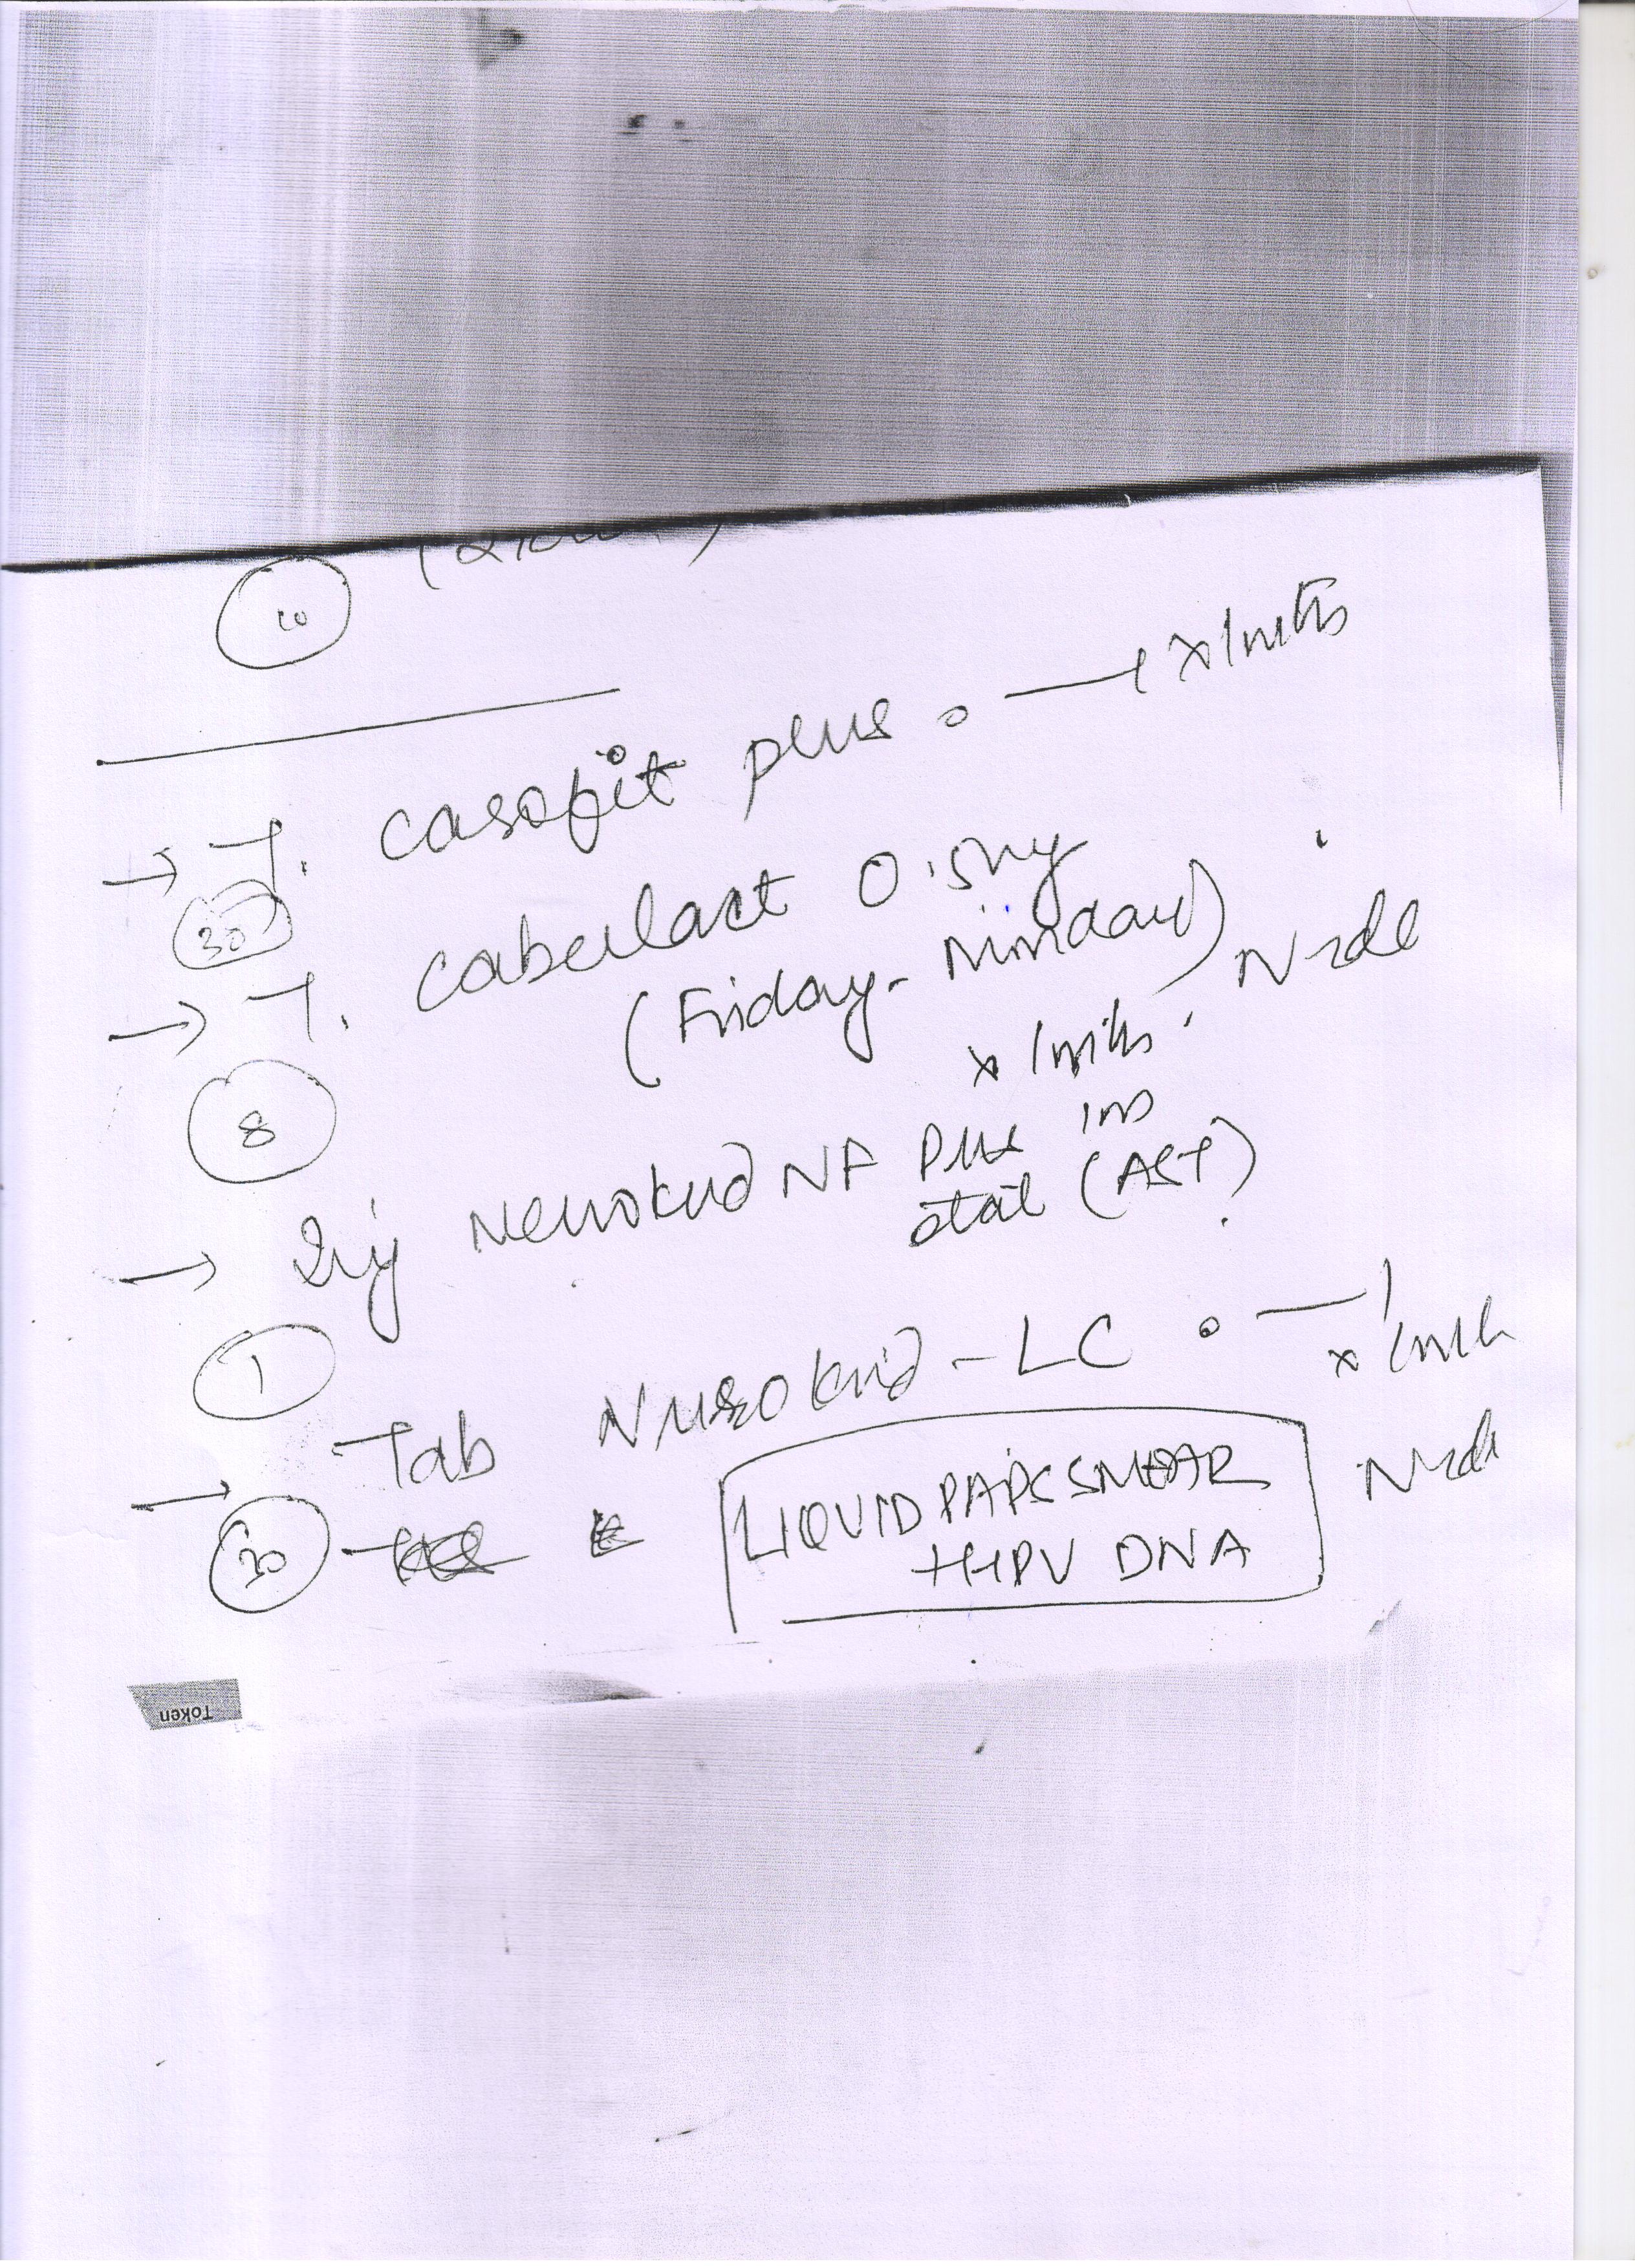 10
→ T. casofit plus o — 1 x 1mths
30
→ T. caberlact 0.5mg
(Friday - Monday)
8
x 1mths
→ Inj Neurokind NF Plus im
stat (AST)
1
→ Tab Nurokind - LC o — 1
x 1mth
30
LIQUID PAPS SMEAR
+ HPV DNA
Token